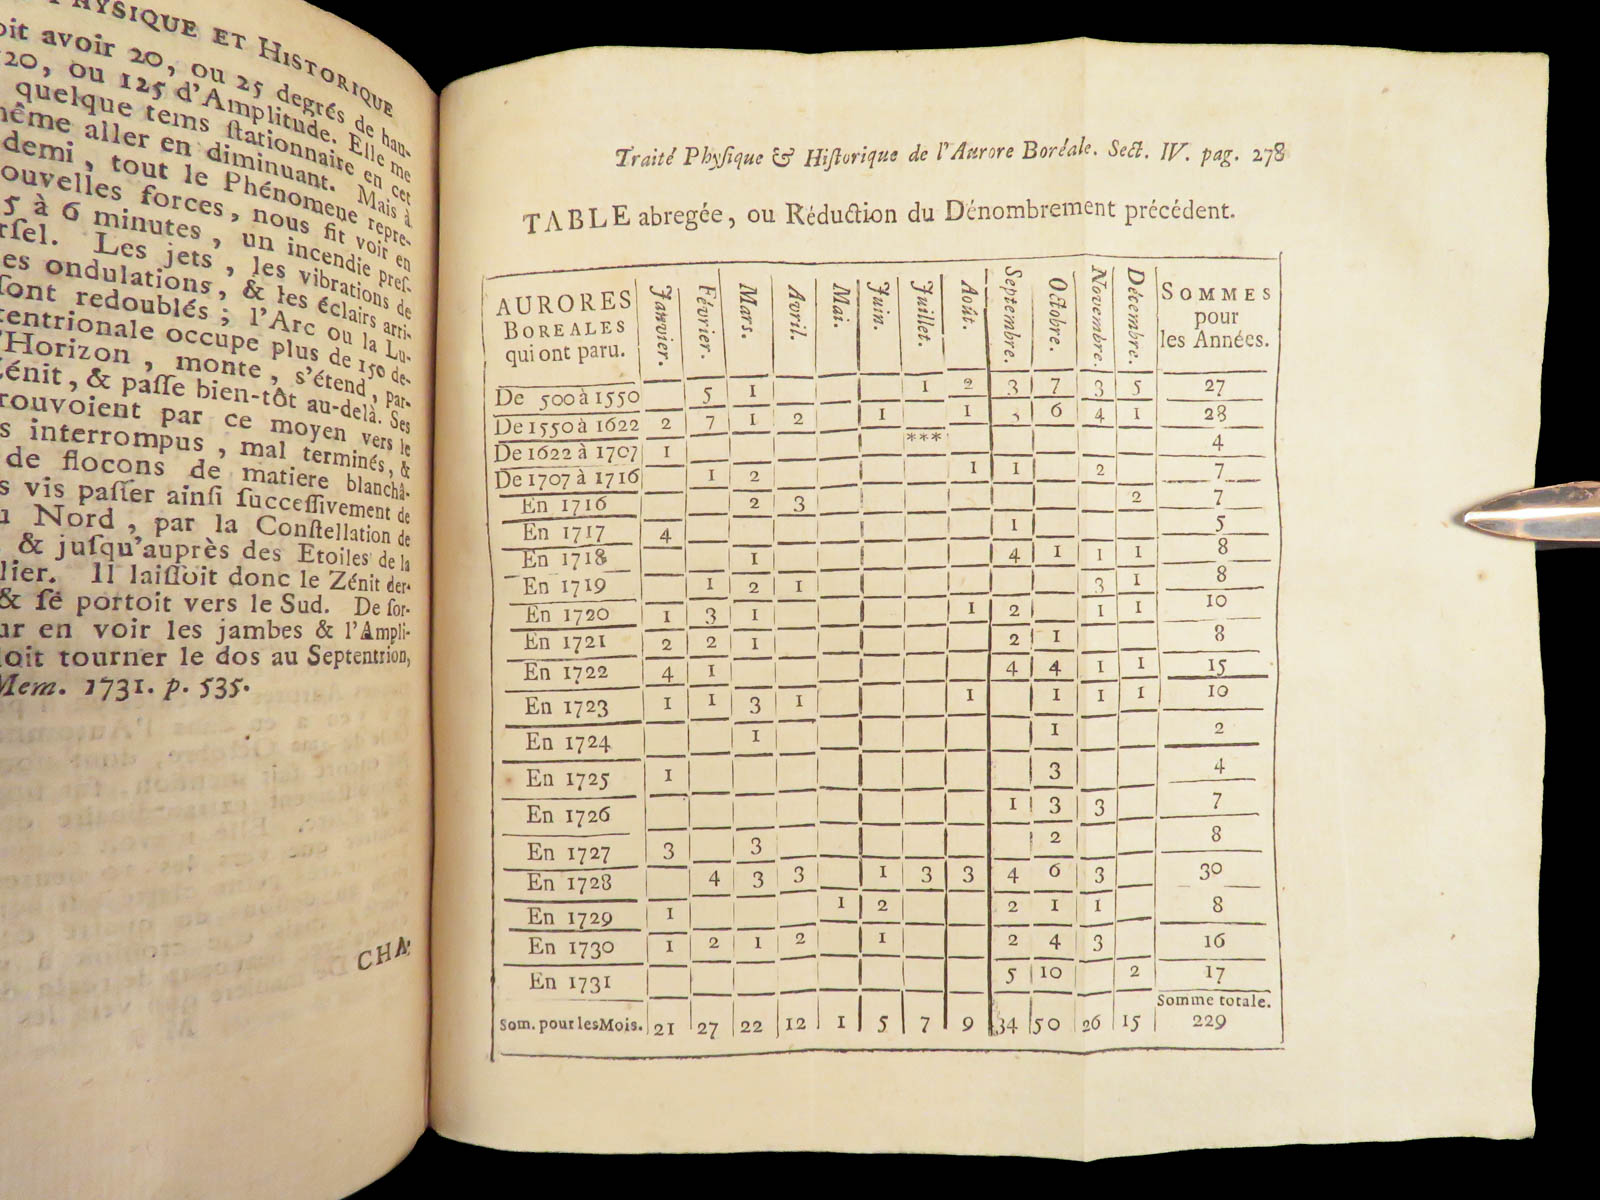 PHYSIQUE ET HISTORIQUE
oit avoir 20, ou 25 degrés de hau-
20, ou 125 d'Amplitude. Elle me
quelque tems ſtationnaire en cet
même aller en diminuant. Mais à
demi, tout le Phénomene repre-
ouvelles forces, nous fit voir en
5 à 6 minutes, un incendie preſ-
rſel. Les jets, les vibrations de
es ondulations, & les éclairs arri-
ſont redoublés; l'Arc ou la Lu-
tentrionale occupe plus de 150 de-
'Horizon, monte, s'étend, par-
Zénit, & paſſe bien-tôt au-delà. Ses
rouvoient par ce moyen vers le
s interrompus, mal terminés, &
de flocons de matiere blanchâ-
s vis paſſer ainſi ſucceſſivement de
u Nord, par la Conſtellation de
& juſqu'auprès des Etoiles de la
lier. Il laiſſoit donc le Zénit der-
& ſe portoit vers le Sud. De ſor-
ur en voir les jambes & l'Ampli-
loit tourner le dos au Septentrion,
Mem. 1731. p. 535.
CHA-
Traité Phyſique & Hiſtorique de l'Aurore Boréale. Sect. IV. pag. 278
TABLE abregée, ou Réduction du Dénombrement précédent.
AURORES BOREALES qui ont paru. Janvier. Février. Mars. Avril. Mai. Juin. Juillet. Août. Septembre. Octobre. Novembre. Décembre. SOMMES pour les Années.
De 500 à 1550 5 1 1 2 3 7 3 5 27
De 1550 à 1622 2 7 1 2 1 1 6 4 1 28
De 1622 à 1707 1 *** 4
De 1707 à 1716 1 2 1 1 2 7
En 1716 2 3 2 7
En 1717 4 1 5
En 1718 1 4 1 1 1 8
En 1719 1 2 1 3 1 8
En 1720 1 3 1 1 2 1 1 10
En 1721 2 2 1 2 1 8
En 1722 4 1 4 4 1 1 15
En 1723 1 1 3 1 1 1 1 1 10
En 1724 1 1 2
En 1725 1 3 4
En 1726 1 3 3 7
En 1727 3 3 2 8
En 1728 4 3 3 1 3 3 4 6 3 30
En 1729 1 1 2 2 1 1 8
En 1730 1 2 1 2 1 2 4 3 16
En 1731 5 10 2 17
Somme totale.
Som. pour les Mois. 21 27 22 12 1 5 7 9 34 50 26 15 229